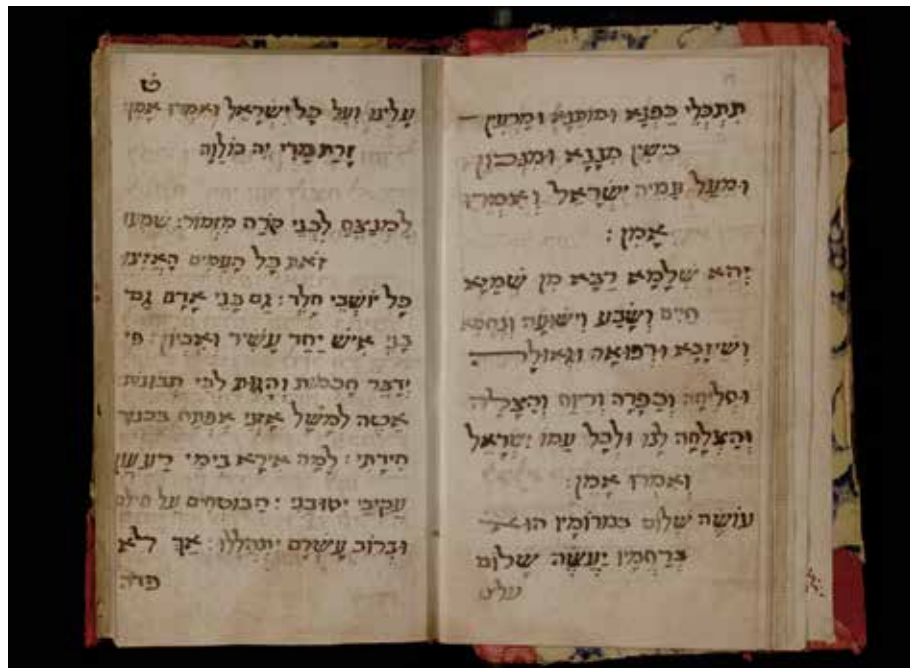 תתכלי כפנא ומותנא ומרעין
בישין מננא ומנכון
ומעל עמיה ישראל ואמרו
אמן :
יהא שלמא רבא מן שמיא
חיים ושבע וישועה ונחמא
ושיזבא ורפואה וגאולה
וסליחה וכפרה וריוח והצלה
והצלחה לנו ולכל עמו ישראל
ואמרו אמן :
עושה שלום במרומיו הוא
ברחמיו יעשה שלום
עלינו
ט
עלינו ועל כל ישראל ואמרו אמן :
למנצח לבני קרח מזמור : שמעו
זאת כל העמים האזינו
כל יושבי חלד : גם בני אדם גם
בני איש יחד עשיר ואביון : פי
ידבר חכמות והגות לבי תבונות :
אטה למשל אזני אפתח בכנור
חידתי : למה אירא בימי רע עון
עקיבי יסובני : הבוטחים על חילם
וברוב עשרם יתהללו : אך לא
פדה